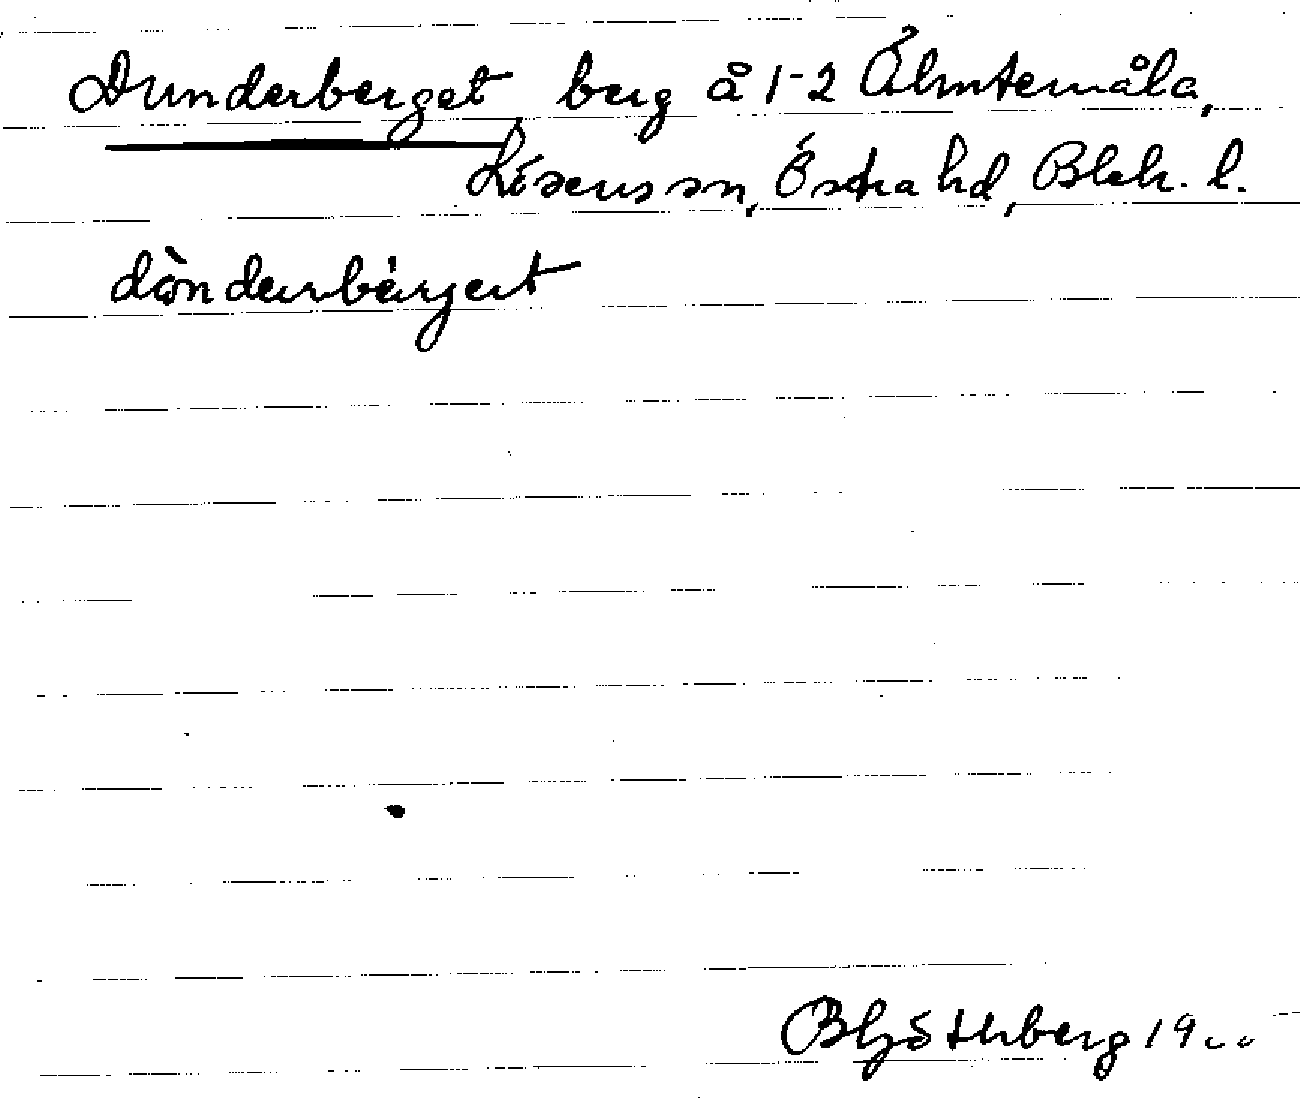 Dunderberget berg å 1-2 Älmtemåla,
Lösens sn, Östra hd, Blek. l.
dòndärbärjet
B Hjöthberg 19